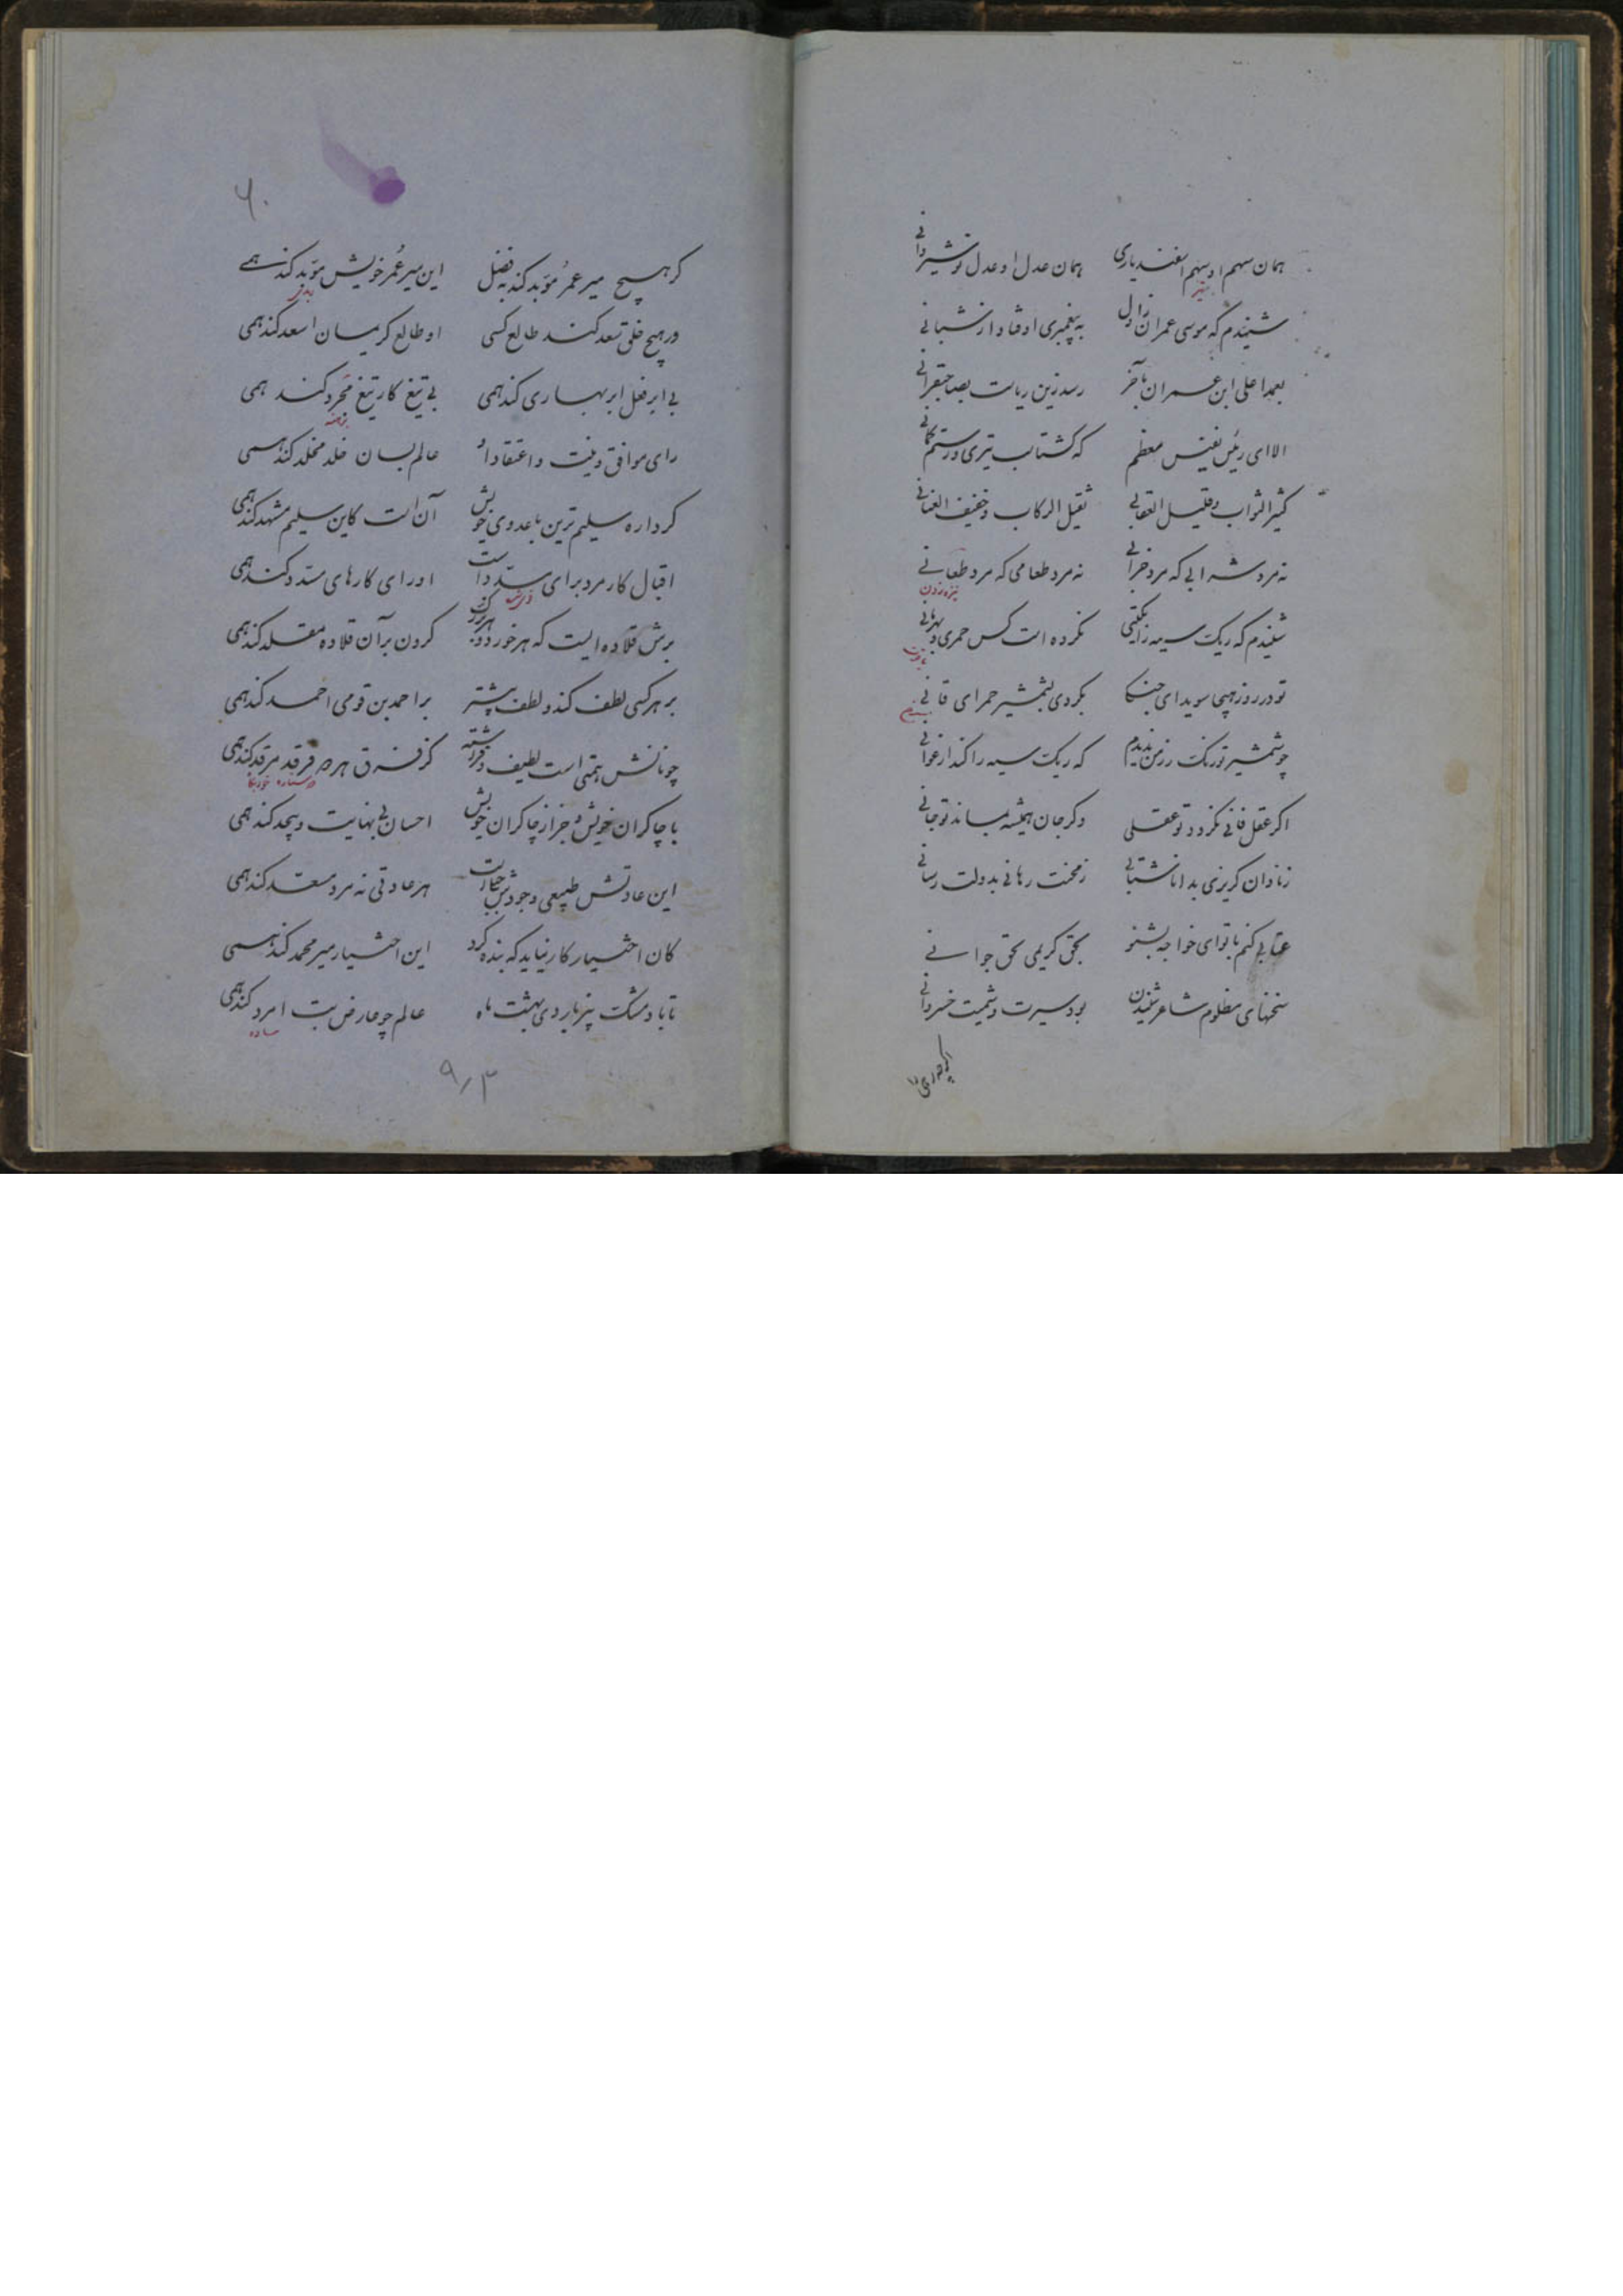 همان سهم او سهم اسفندیاری همان عدل او عدل نوشیروانی
شنیدم که موسی عمران ز اول به پیغمبری اوفتاد از شبانی
بعمدا علی ابن عمران بآخر رسد زین ریاست بصاحبقرانی
الا ای رئیس نفیس معظم که گشتاسب تیری و رستم کمانی
کثیر الثواب و قلیل العقابی ثقیل الرکاب و خفیف العنانی
نه مرد شرابی که مرد ضرابی نه مرد طعامی که مرد طعانی
نیزه زدن
شنیدم که ریک سیه را بگیتی نکرده است کس حمری و بهرمانی
تو در روز هیجا سویدای جنگا بکردی بشمشیر حمرای قانی
چو شمشیر تو رنک رزمن ندیدم که ریک سیه را کند ارغوانی
اکر عقل فانی نکردد تو عقلی وکر جان همیشه بماند تو جانی
ز نادان کریزی بدانا شتابی ز محنت رهانی بدولت رسانی
عتابی کنم با تو ای خواجه بشنو بحق کریمی بحق جوانی
سخنهای منظوم شاعر شنیدن بود سیرت و شیمت خسروانی
۶۰
کر هیچ میر عمر مؤبد کند به فضل این میر عمر خویش مؤبد کند همی
ور هیچ خلق سعد کند طالع کسی او طالع کریمان اسعد کند همی
بی ابر فعل ابر بهاری کند همی بی تیغ کار تیغ مجرد کند همی
برهنه
رای موافق و نیت و اعتقاد او عالم بسان خلد مخلد کند همی
کرداره سلیم ترین با عدوی خویش آن است کاین سلیم مشهد کند همی
اقبال کار مرد برای مسدد است او رای کارهای مسدد کند همی
برش قلاده ایست که هر خور دو بزرک کردن بر آن قلاده مقلد کند همی
بر هر کسی لطف کند و لطف بیشتر بر احمد بن قومی احمد کند همی
چونانش همتی است لطیف و فراشته کز فرق هر دو فرقد مرقد کند همی
دو ستاره
با چاکران خویش و جز از چاکران خویش احسان بی نهایت و بیحد کند همی
این عادتش طبیعی و جودش جبلت هر عادتی نه مرد معتد کند همی
کان اختیار کار نیاید که بنده کرد این اختیار میر محمد کند همی
تا باد مشک بیزد اردی بهشت ماه عالم چو عارض بت امرد کند همی
ساده
۹۱۳